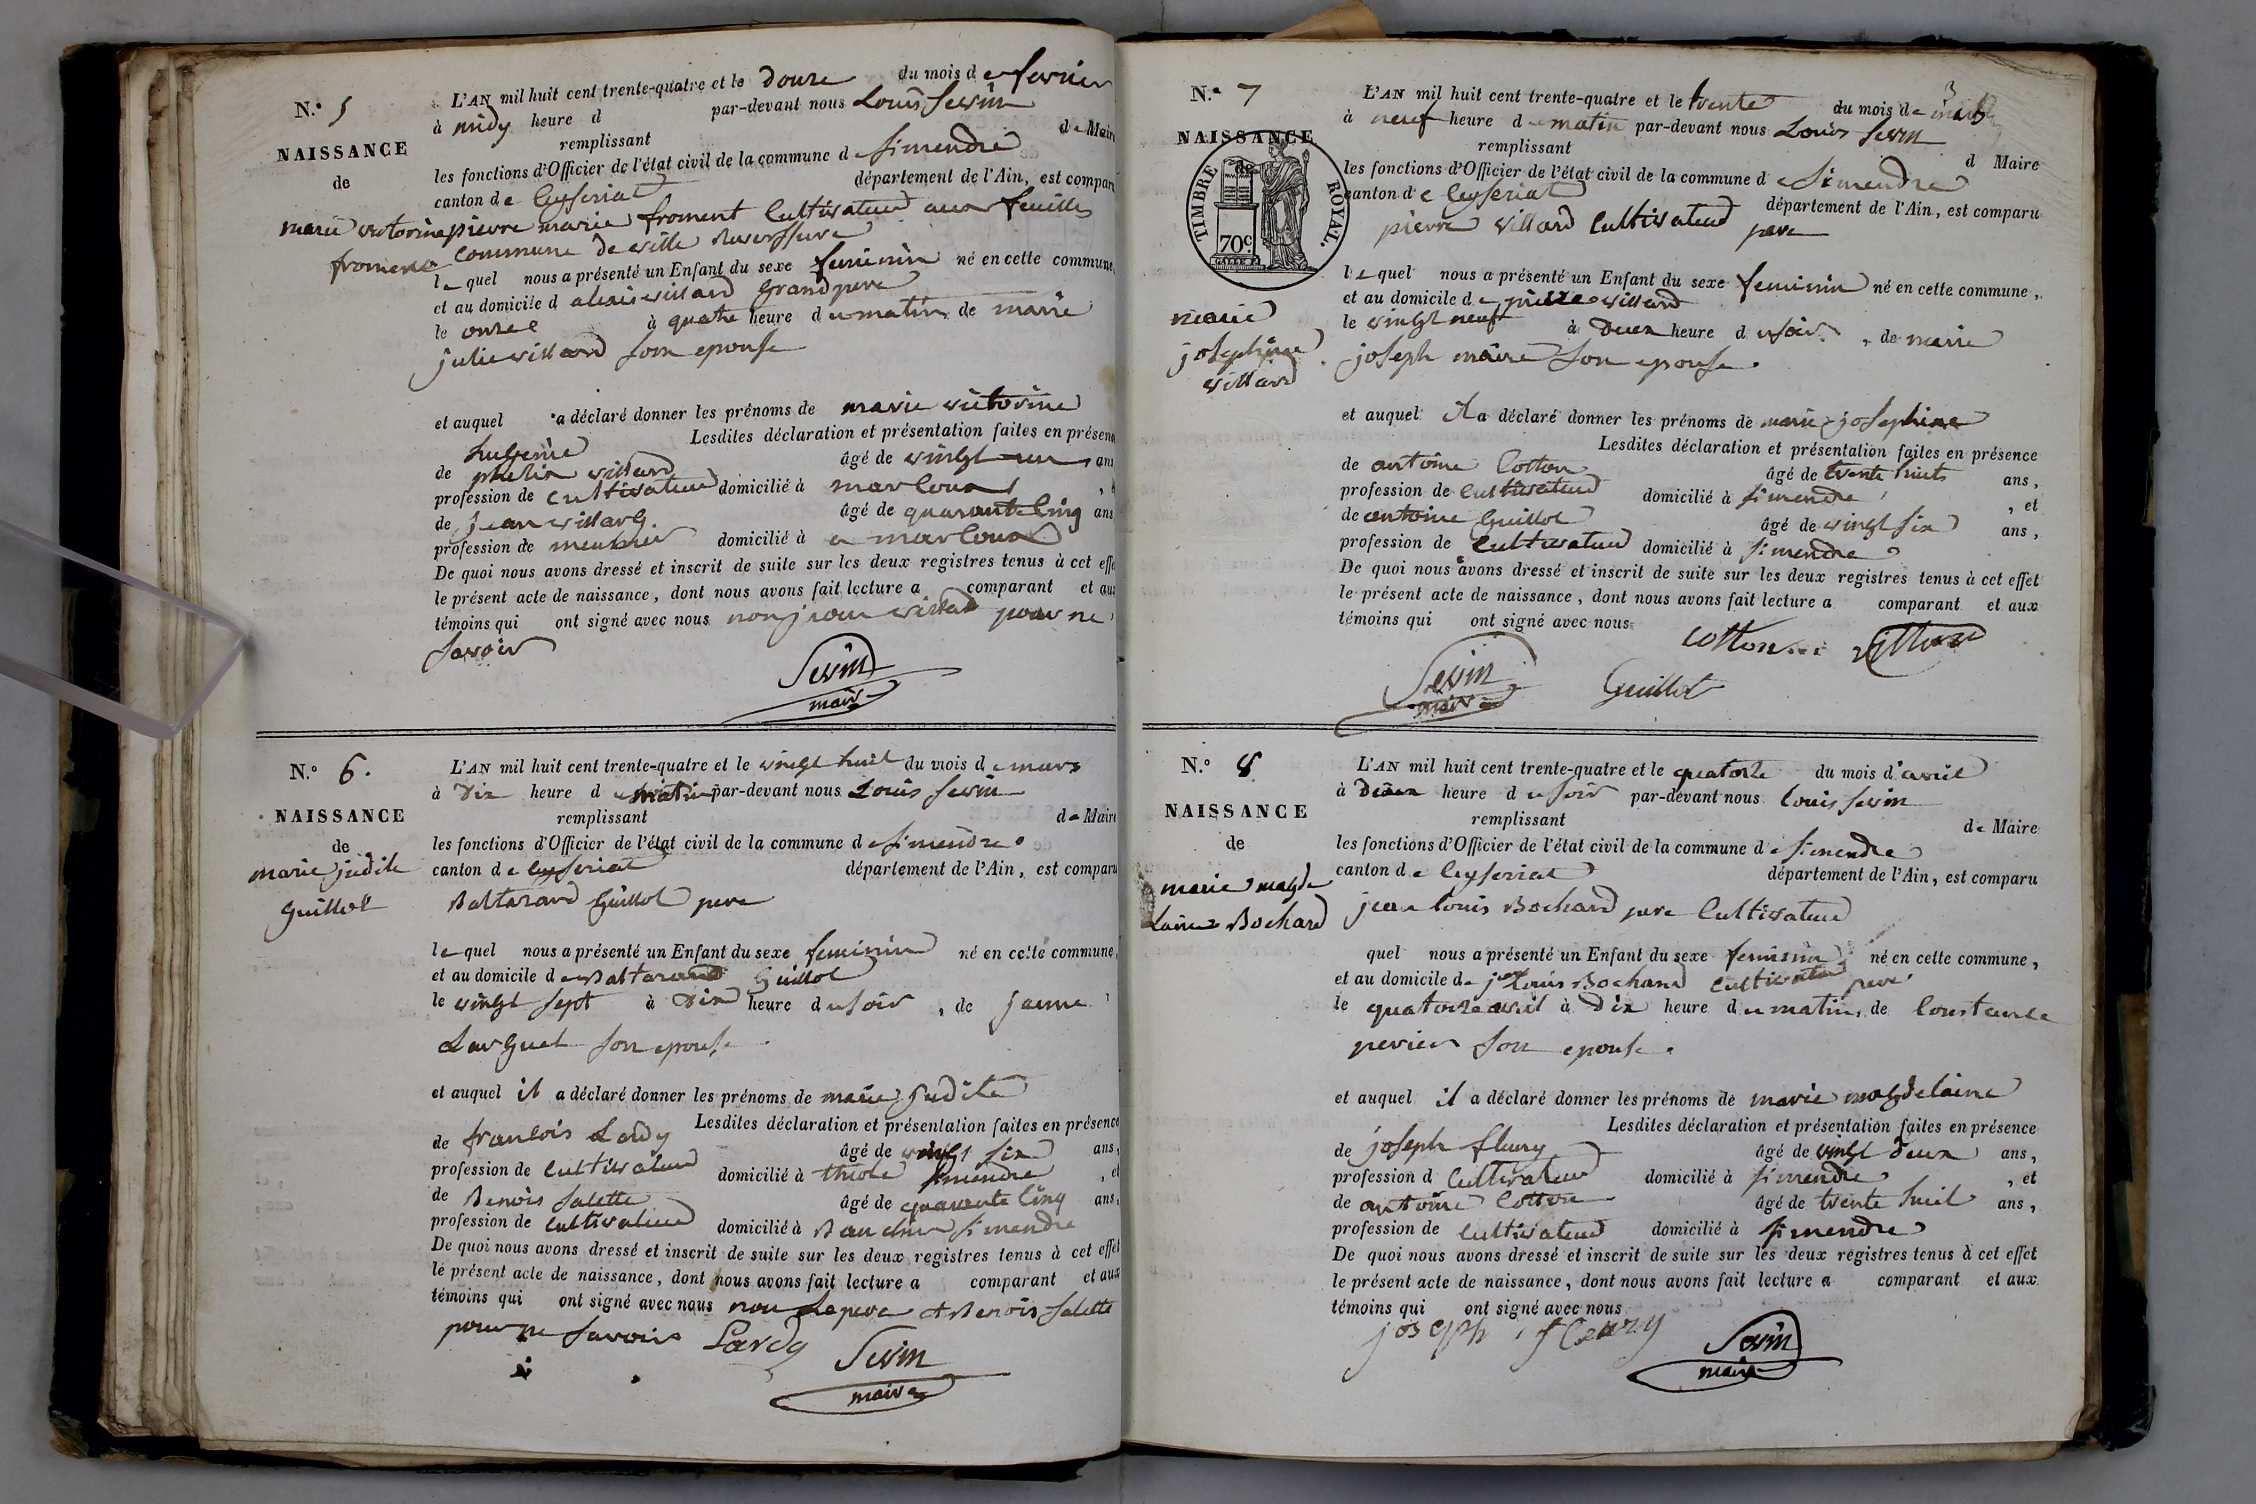 N.° 5
NAISSANCE
de
marie victorine
froment
L'AN mil huit cent trente-quatre et le douze du mois de fevrier
à midy heure d par-devant nous Louis Sevin
remplissant de Maire
les fonctions d'Officier de l'état civil de la commune de Simendre
canton de Ceyseriat département de l'Ain, est comparu
pierre marie froment Cultivateur aux feuilles
Commune de ville Reversure
lequel nous a présenté un Enfant du sexe feminin né en cette commune,
et au domicile d villard Grand pere
le onze à quatre heure du matin, de marie
julie villard Son epouse
et auquel a déclaré donner les prénoms de marie victorine
Lesdites déclaration et présentation faites en présence
de villard âgé de vingt un ans
profession de Cultivateur domicilié à marloux,
de jean villard âgé de quarante Cinq ans
profession de meunier domicilié à a marloux
De quoi nous avons dressé et inscrit de suite sur les deux registres tenus à cet effet
le présent acte de naissance, dont nous avons fait lecture a comparant et aux
témoins qui ont signé avec nous non jean villard pour ne
Savoir
Sevin
maire
N.° 6.
NAISSANCE
de
marie judite
Guillot
L'AN mil huit cent trente-quatre et le vingt huit du mois de mars
à Dix heure du matin par-devant nous Louis Sevin
remplissant de Maire
les fonctions d'Officier de l'état civil de la commune de Simendre
canton de Ceyseriat département de l'Ain, est comparu
Baltazard Guillot pere
lequel nous a présenté un Enfant du sexe feminin né en cette commune,
et au domicile de Baltazard Guillot
le vingt Sept à Dix heure du Soir, de jeanne
Larguet Son epouse
et auquel il a déclaré donner les prénoms de marie judite
Lesdites déclaration et présentation faites en présence
de francois Lardy âgé de vingt Six ans,
profession de Cultivateur domicilié à thiole Simendre, et
de Benois Salette âgé de quarante Cinq ans,
profession de Cultivateur domicilié à Simendre
De quoi nous avons dressé et inscrit de suite sur les deux registres tenus à cet effet
le présent acte de naissance, dont nous avons fait lecture a comparant et aux
témoins qui ont signé avec nous non Le pere et Benois Salette
pour ne Savoir Lardy Sevin
maire
N.° 7
NAISSANCE
de
TIMBRE ROYAL.
70c.
marie
josephine
villard
L'AN mil huit cent trente-quatre et le trente du mois de mars
à neuf heure du matin par-devant nous Louis Sevin
remplissant d Maire
les fonctions d'Officier de l'état civil de la commune de Simendre
canton de Ceyseriat département de l'Ain, est comparu
pierre villard Cultivateur pere
lequel nous a présenté un Enfant du sexe feminin né en cette commune,
et au domicile de pierre villard
le vingt neuf à Deux heure du Soir, de marie
joseph maire Son epouse.
et auquel il a déclaré donner les prénoms de marie josephine
Lesdites déclaration et présentation faites en présence
de antoine Cotton âgé de trente huit ans,
profession de Cultivateur domicilié à Simendre, et
de antoine Guillot âgé de vingt Six ans,
profession de Cultivateur domicilié à Simendre
De quoi nous avons dressé et inscrit de suite sur les deux registres tenus à cet effet
le présent acte de naissance, dont nous avons fait lecture a comparant et aux
témoins qui ont signé avec nous
Cotton villard
Sevin Guillot
maire
N.° 8
NAISSANCE
de
marie magde
laine Bochard
L'AN mil huit cent trente-quatre et le quatorze du mois d'avril
à Deux heure du Soir par-devant nous Louis Sevin
remplissant de Maire
les fonctions d'Officier de l'état civil de la commune de Simendre
canton de Ceyseriat département de l'Ain, est comparu
jean Louis Bochard pere Cultivateur
quel nous a présenté un Enfant du sexe feminin né en cette commune,
et au domicile de jean Louis Bochard Cultivateur pere
le quatorze avril à Dix heure du matin, de Constance
perier Son epouse.
et auquel il a déclaré donner les prénoms de marie magdelaine
Lesdites déclaration et présentation faites en présence
de joseph fleury âgé de vingt Deux ans,
profession d Cultivateur domicilié à Simendre, et
de antoine Cotton âgé de trente huit ans,
profession de Cultivateur domicilié à Simendre
De quoi nous avons dressé et inscrit de suite sur les deux registres tenus à cet effet
le présent acte de naissance, dont nous avons fait lecture a comparant et aux
témoins qui ont signé avec nous
joseph fleury Sevin
maire